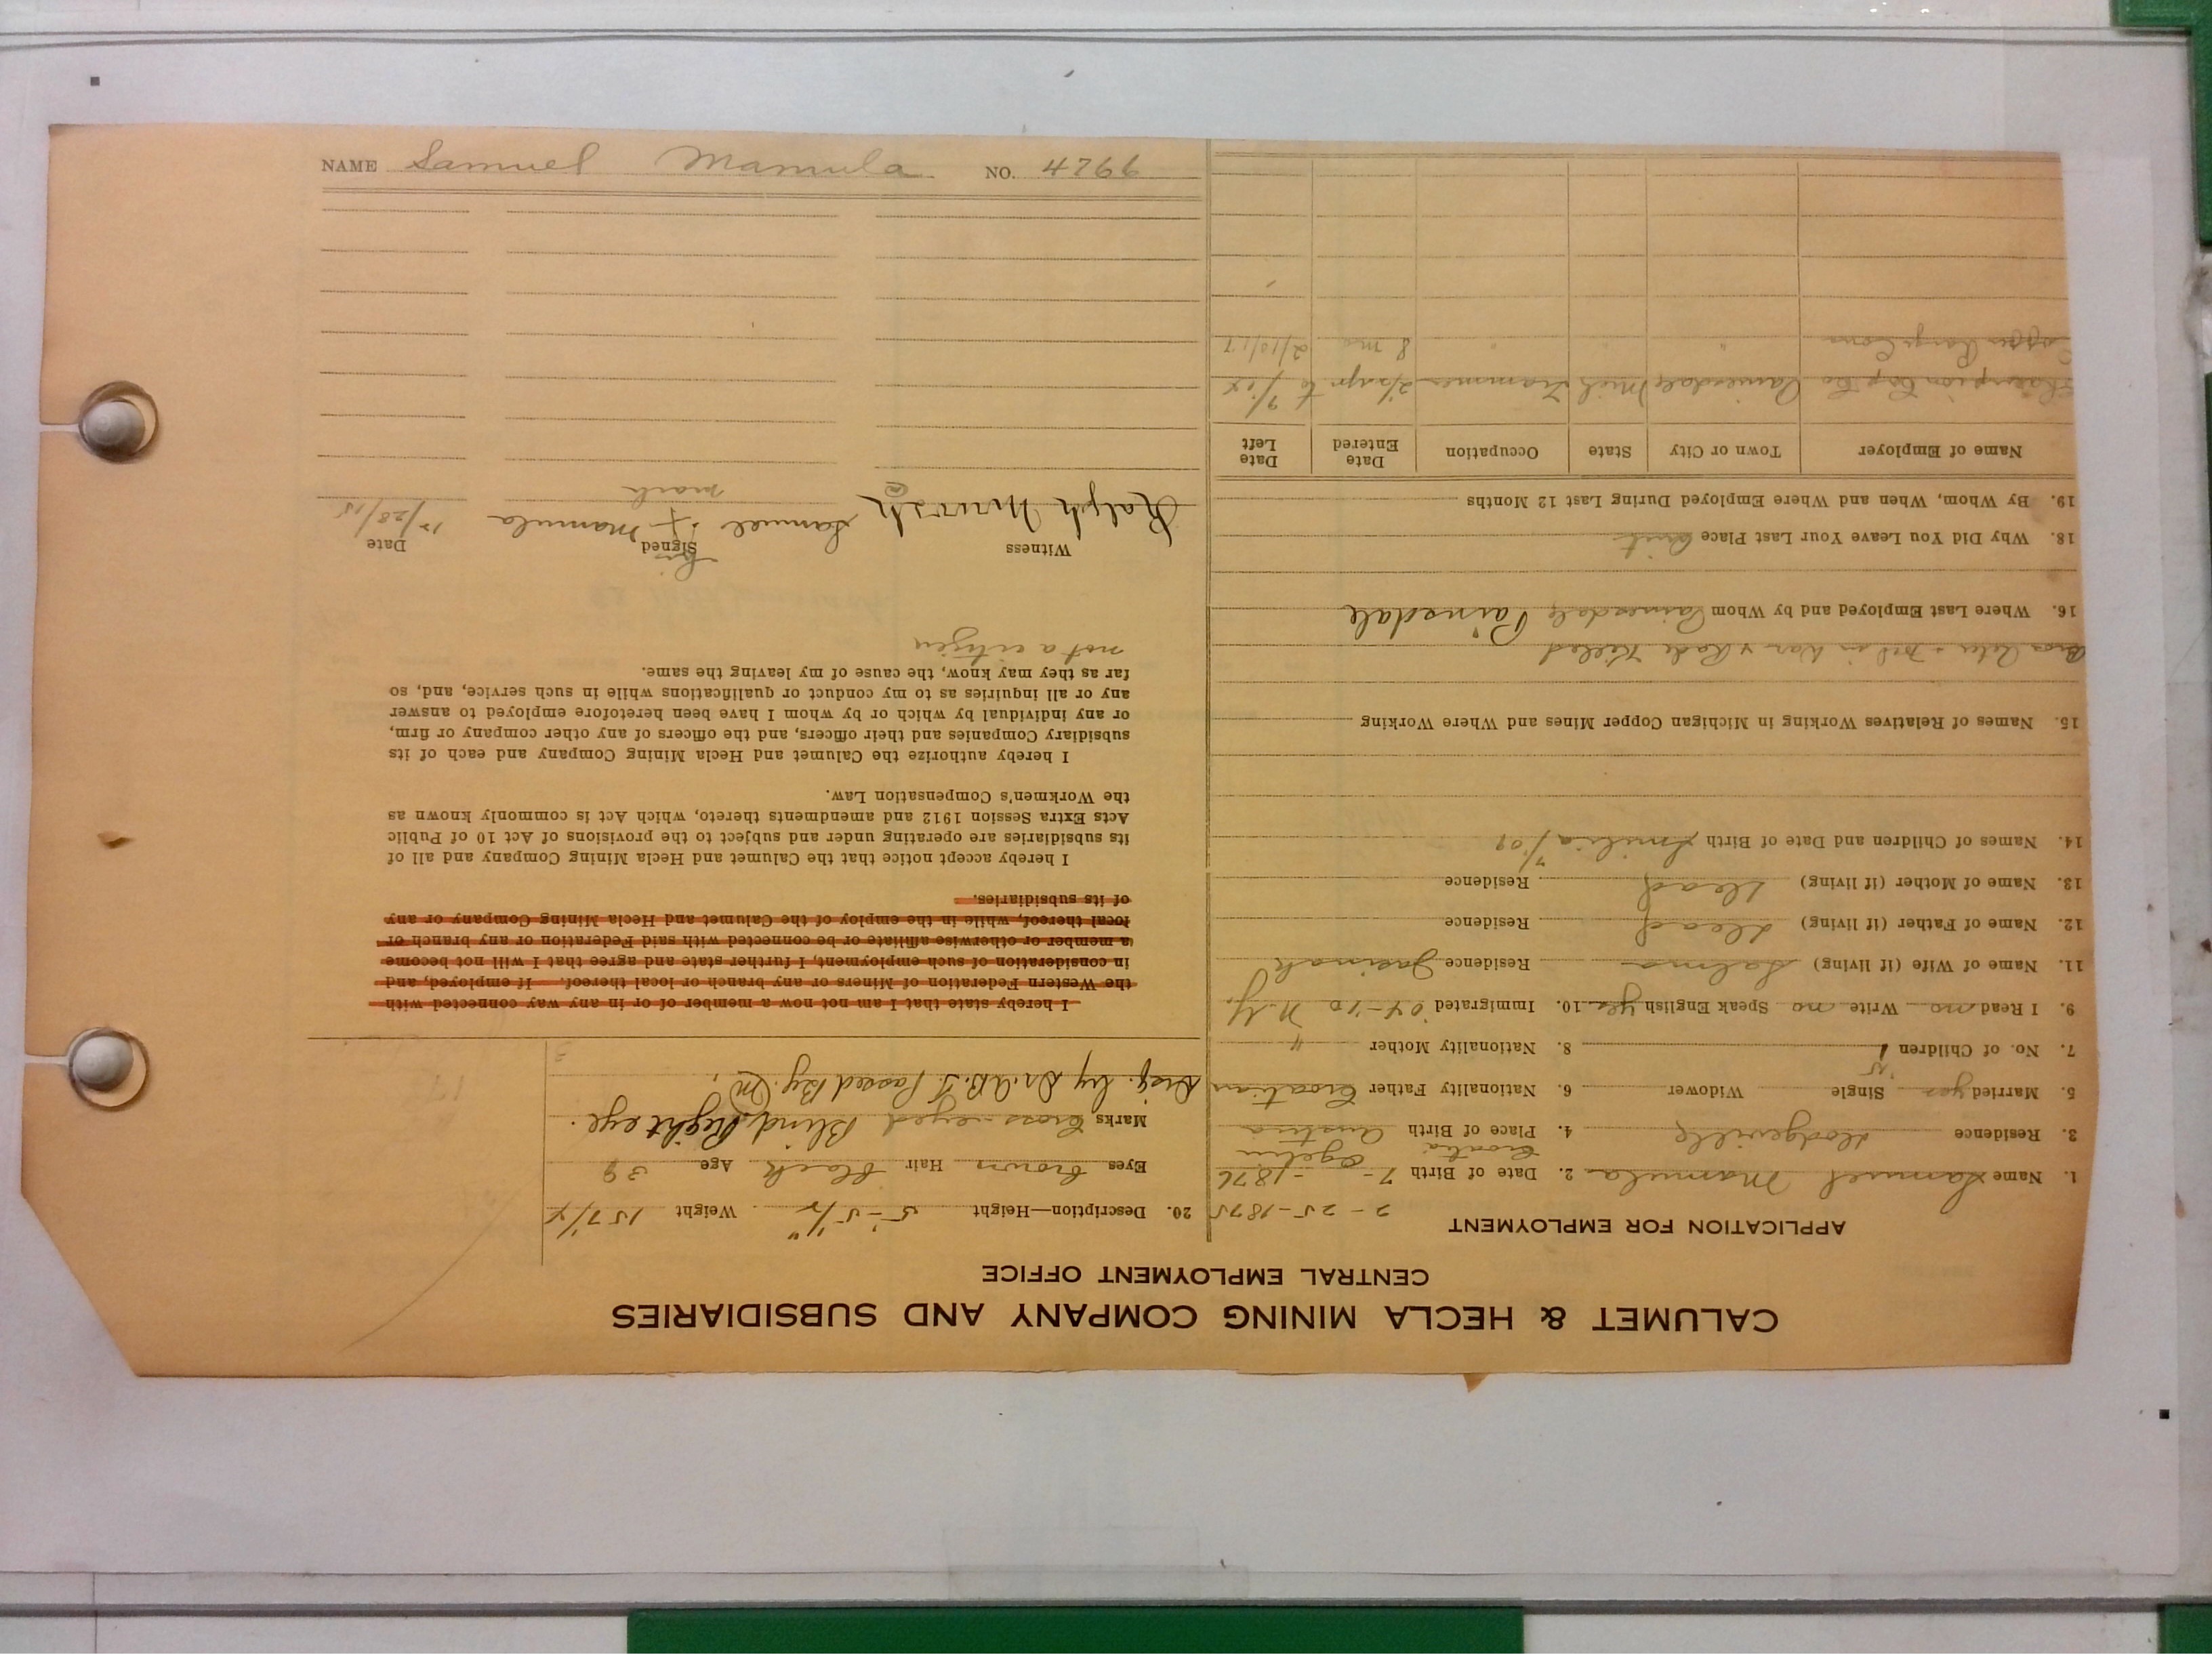 CALUMET & HECLA MINING COMPANY AND SUBSIDIARIES
CENTRAL EMPLOYMENT OFFICE
APPLICATION FOR EMPLOYMENT
2-25-1875
1. Name Samuel Mamula 2. Date of Birth 7 - - 1876
Croatia Ogulin
3. Residence Hodgeville 4. Place of Birth Austria
5. Married yes Single Widower 6. Nationality Father Croatian
7. No. of Children 1 8. Nationality Mother "
9. I Read no Write no Speak English yes 10. Immigrated '04-'10 N.Y.
11. Name of Wife (if living) Salma Residence
12. Name of Father (if living) dead Residence
13. Name of Mother (if living) dead Residence
14. Names of Children and Date of Birth Smilia 7/09
15. Names of Relatives Working in Michigan Copper Mines and Where Working
in War & Rade Killed
16. Where Last Employed and by Whom Painesdale Painesdale
18. Why Did You Leave Your Last Place quit
19. By Whom, When and Where Employed During Last 12 Months
Name of Employer Town or City State Occupation Date Entered Date Left
Champion Cop Co Painesdale Mich Trammer 2 1/2 yr to
Copper Range Cons " " " 8 mo 2/10/17
20. Description—Height 5'-5 1/2" Weight 157 1/4
Eyes brown Hair black Age 39
Marks Cross-eyed Blind Right eye.
by Dr. A.B.S. Passed By
I hereby state that I am not now a member of or in any way connected with
the Western Federation of Miners or any branch or local thereof. If employed, and
in consideration of such employment, I further state and agree that I will not become
a member or otherwise affiliate or be connected with said Federation or any branch or
local thereof, while in the employ of the Calumet and Hecla Mining Company or any
of its subsidiaries.
I hereby accept notice that the Calumet and Hecla Mining Company and all of
its subsidiaries are operating under and subject to the provisions of Act 10 of Public
Acts Extra Session 1912 and amendments thereto, which Act is commonly known as
the Workmen's Compensation Law.
I hereby authorize the Calumet and Hecla Mining Company and each of its
subsidiary Companies and their officers, and the officers of any other company or firm,
or any individual by which or by whom I have been heretofore employed to answer
any or all inquiries as to my conduct or qualifications while in such service, and, so
far as they may know, the cause of my leaving the same.
not a citizen
Witness Signed Date
his
Ralph Samuel x Mamula 12/28/15
mark
NAME Samuel Mamula NO. 4766